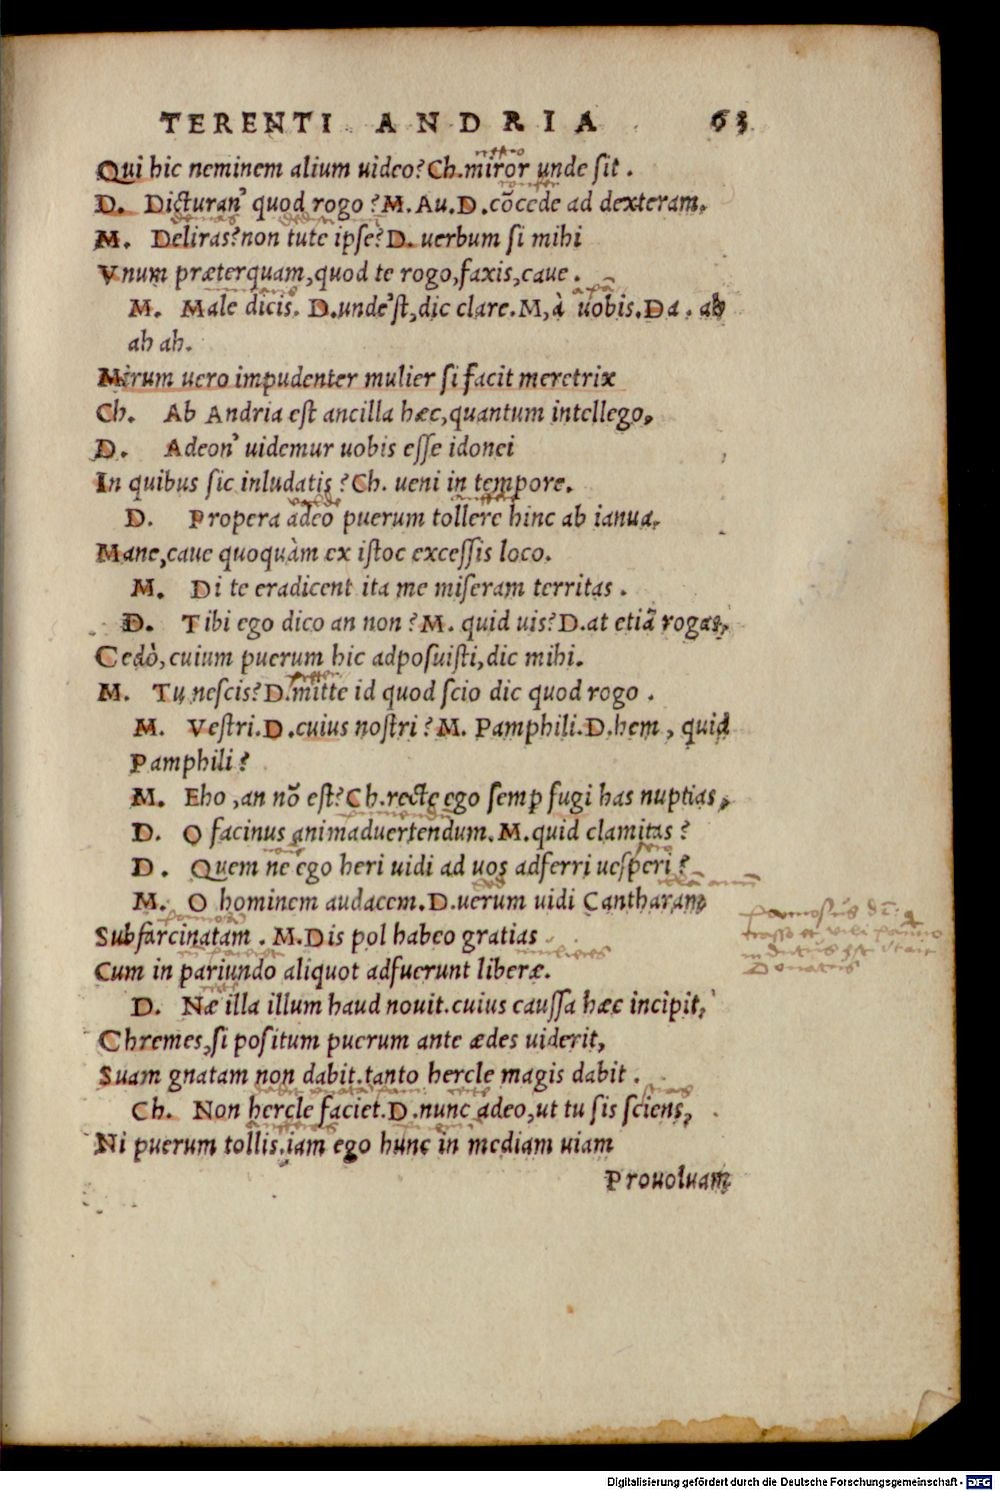 TERENTI ANDRIA 63
Qui hic neminem alium uideo? Ch. miror unde sit.
D. Dicturan' quod rogo? M. Au. D. cōcede ad dexteram.
M. Deliras? non tute ipse? D. uerbum si mihi
Vnum præterquam, quod te rogo, faxis, caue.
M. Male dicis. D. unde'st, dic clare. M, à uobis. Da. ah
ah ah.
Mirum uero impudenter mulier si facit meretrix
Ch. Ab Andria est ancilla hæc, quantum intellego,
D. Adeon' uidemur uobis esse idonei
In quibus sic inludatis? Ch. ueni in tempore.
ualde
D. Propera adeo puerum tollere hinc ab ianua,
Mane, caue quoquàm ex istoc excessis loco.
M. Di te eradicent ita me miseram territas.
D. Tibi ego dico an non? M. quid uis? D. at etiā rogas,
Cedò, cuium puerum hic adposuisti, dic mihi.
M. Tu nescis? D. mitte id quod scio dic quod rogo.
M. Vestri. D. cuius nostri? M. Pamphili. D. hem, quid
Pamphili?
M. Eho, an nō est? Ch. recte ego semꝑ fugi has nuptias,
D. O facinus animaduertendum. M. quid clamitas?
D. Quem ne ego heri uidi ad uos adferri uesperi?
M. O hominem audacem. D. uerum uidi Cantharam
Subfarcinatam. M. Dis pol habeo gratias
mulieres
Cum in pariundo aliquot adfuerunt liberæ.
D. Næ illa illum haud nouit. cuius caussa hæc incipit,
Chremes, si positum puerum ante ædes uiderit,
Suam gnatam non dabit. tanto hercle magis dabit.
Ch. Non hercle faciet. D. nunc adeo, ut tu sis sciens,
Ni puerum tollis. iam ego hunc in mediam uiam
Prouoluam
Donatus
Digitalisierung gefördert durch die Deutsche Forschungsgemeinschaft - DFG